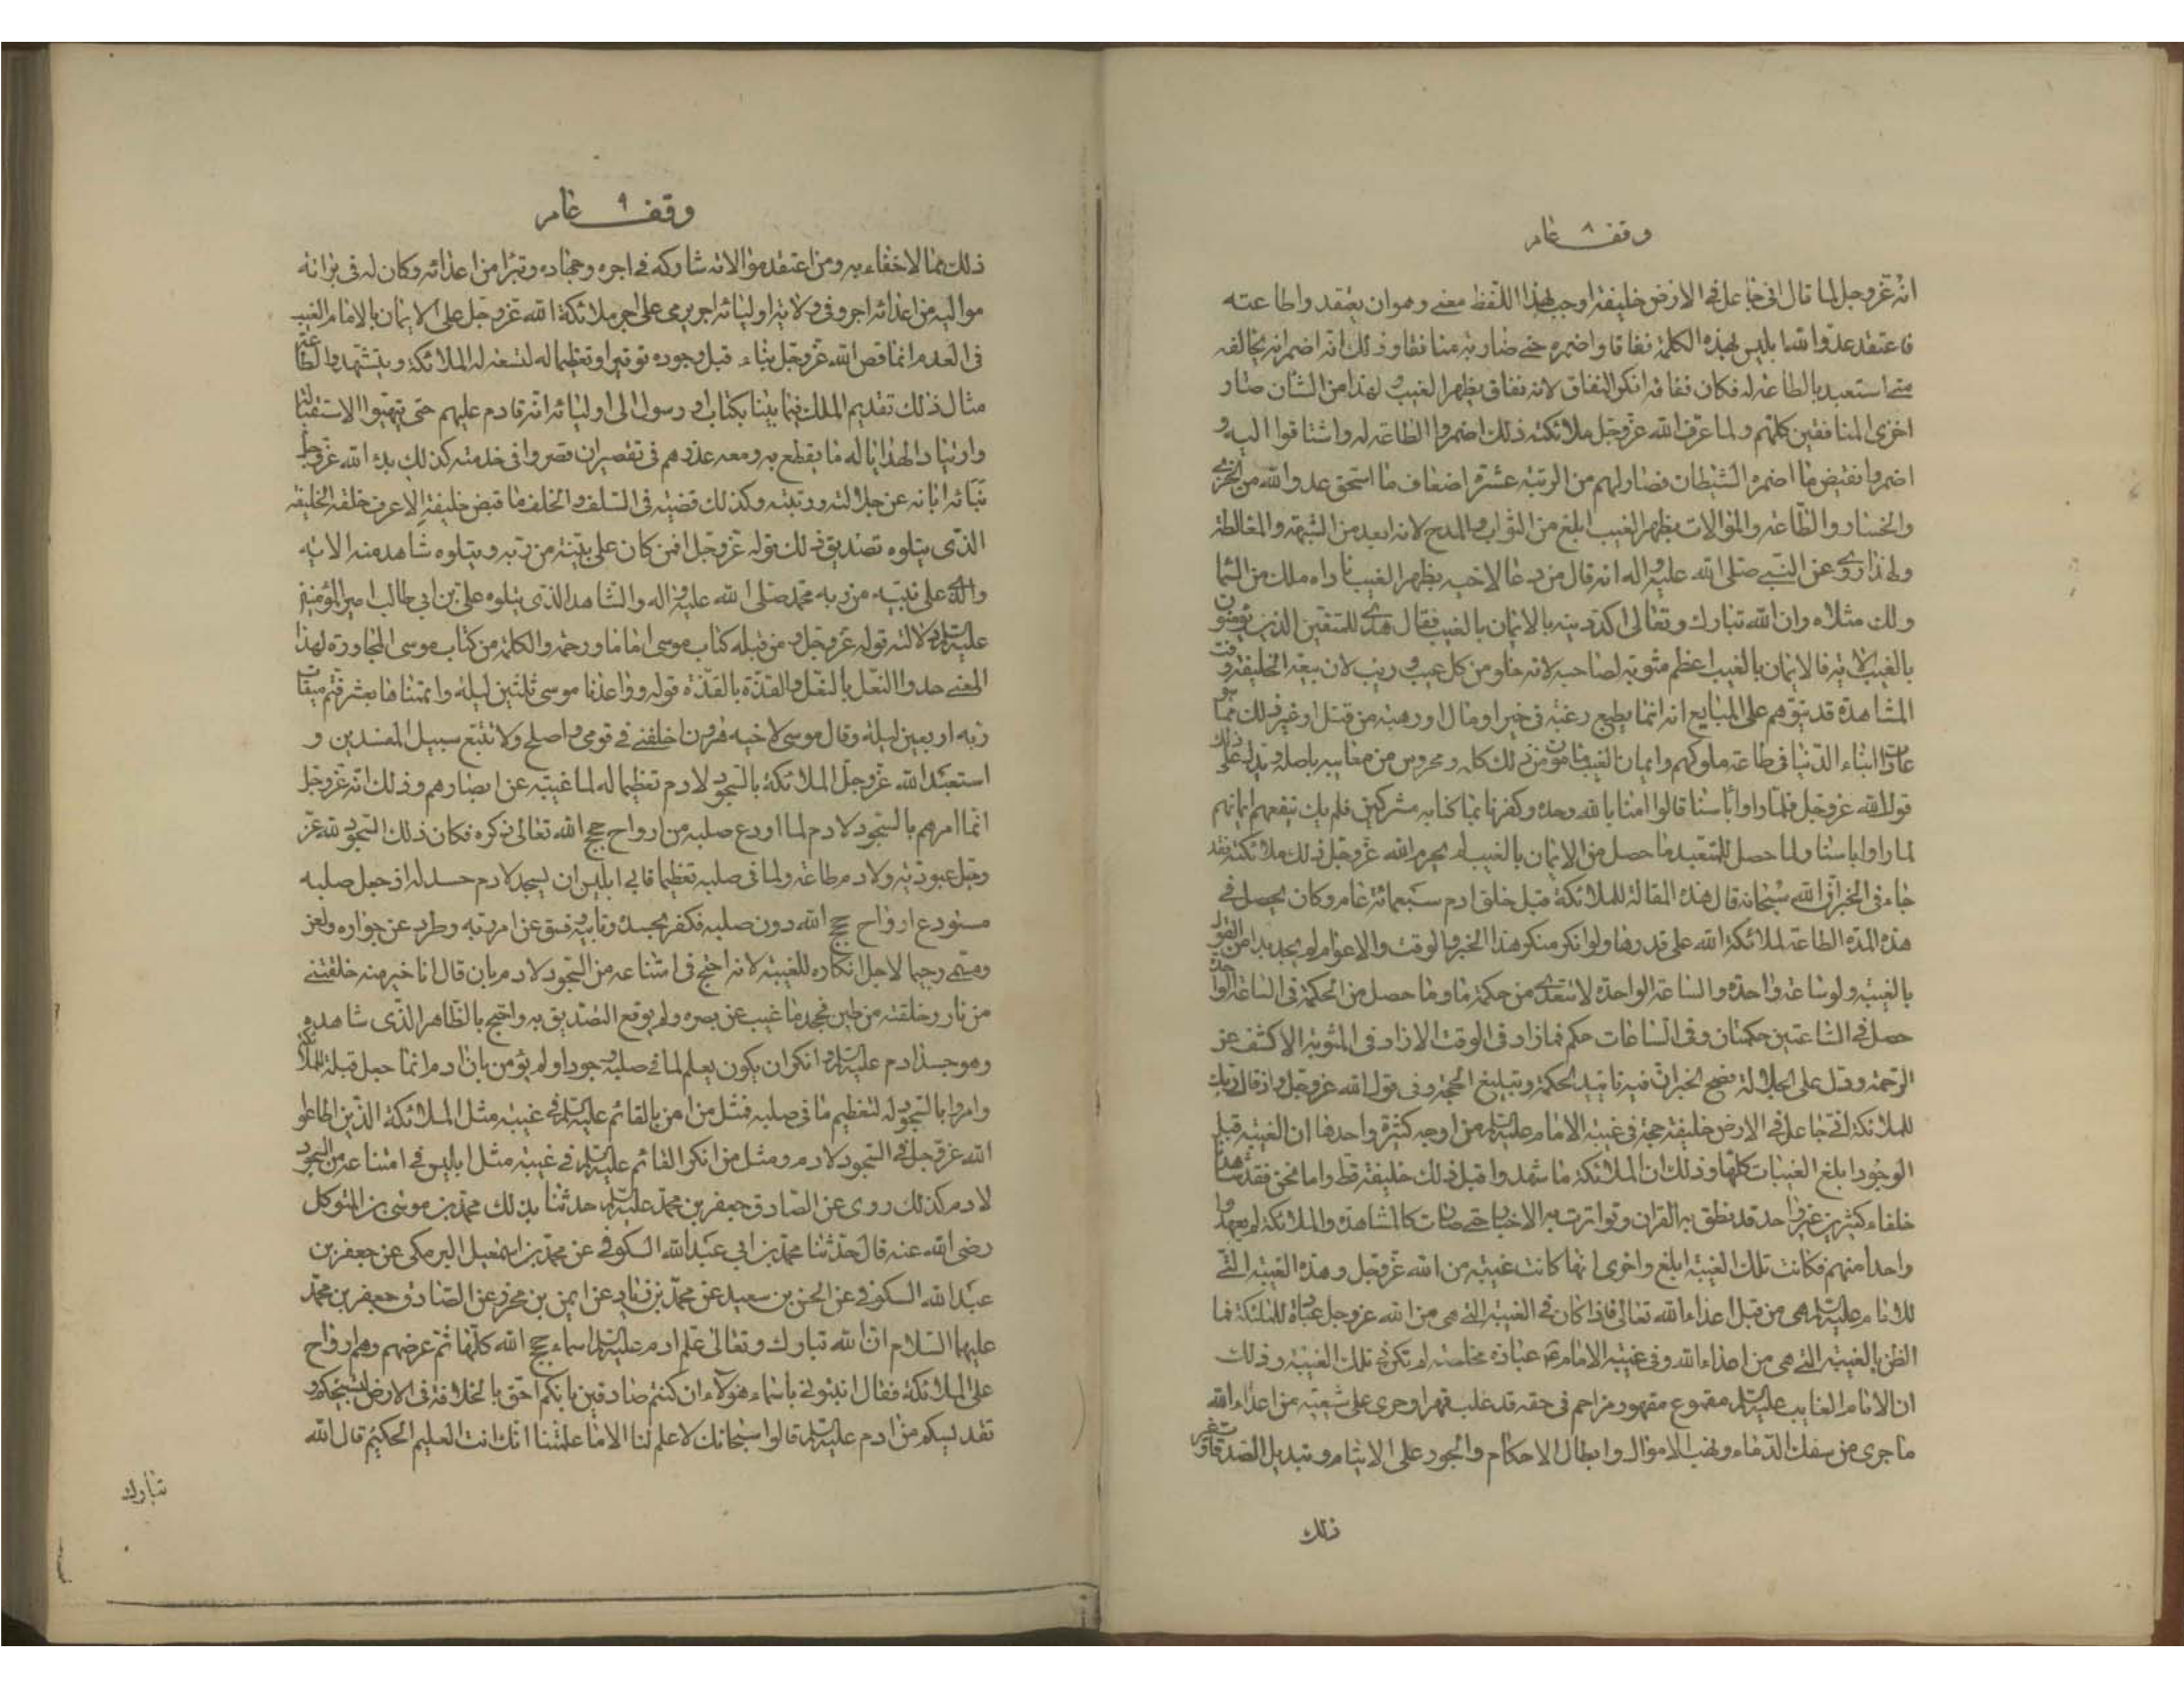 وقف ٨ عام
انه عز وجل لما قال انى جاعل فى الارض خليفة اوجب بهذا اللفظ معنى وهو ان يعتقد واطاعته
فاعتقد عدو الله ابليس بهذه الكلمة نفاقا واضمره حتى صار به منافقا وذلك انه اضمر انه يخالفه
متى استعبد بالطاعة له فكان نفاقه انكر النفاق لانه نفاق بظهر الغيب ولهذا من الشان صار
اخزى المنافقين كلهم ولما عرف الله عز وجل ملائكته ذلك اضمروا الطاعة له واشتاقوا اليه و
اضمروا نقيض ما اضمره الشيطان فصار لهم من الرتبة عشرة اضعاف ما استحق عدو الله من الخزى
والخسار والطاعة والموالات بظهر الغيب ابلغ من الثواب والمدح لانه ابعد من الشبهة والمغالطة
ولهذا روى عن النبى صلى الله عليه واله انه قال من دعا لاخيه بظهر الغيب ناداه ملك من السما
ولك مثلاه وان الله تبارك وتعالى اكد دينه بالايمان بالغيب فقال هدى للمتقين الذين يؤمنون
بالغيب الاية فالايمان بالغيب اعظم مثوبة لصاحبه لانه خلو من كل عيب وريب لان بيعة الخليفة وقت
المشاهدة قد يتوهم على المبايع انه انما يطيع رغبة فى خير او مال او رهبة من قتل او غير ذلك مما هو
عادات ابناء الدنيا فى طاعة ملوكهم وايمان الغيب مامون من ذلك كله ومحروس من معايبه باصله ويدل على ذلك
قول الله عز وجل فلما راوا باسنا قالوا امنا بالله وحده وكفرنا بما كنا به مشركين فلم يك ينفعهم ايمانهم
لما راوا باسنا ولما حصل للمتعبد ما حصل من الايمان بالغيب لم يحرم الله عز وجل ذلك ملائكته فقد
جاء فى الخبر ان الله سبحانه قال هذه المقالة للملائكة قبل خلق ادم سبعمائة عام وكان يحصل فى
هذه المدة الطاعة لملائكة الله على قدرها ولو انكر منكر هذا الخبر والوقت والاعوام لم يجد بدا من القول
بالغيبة ولو ساعة واحدة والساعة الواحدة لا تتعدى من حكمة ما وما حصل من الحكمة فى الساعة الواحدة
حصل فى الساعتين حكمتان وفى الساعات حكم فما زاد فى الوقت الا زاد فى المثوبة الا كشف عن
الرحمة ودل على الجلالة فصح الخبر ان فيه تاييد الحكمة وتبليغ الحجة وفى قول الله عز وجل واذ قال ربك
للملائكة انى جاعل فى الارض خليفة حجة فى غيبة الامام عليه السلام من اوجه كثيرة واحدها ان الغيبة قبل
الوجود ابلغ الغيبات كلها وذلك ان الملائكة ما شهدوا قبل ذلك خليفة قط واما نحن فقد شاهدنا
خلفاء كثيرين غير واحد قد نطق به القران وتواترت به الاخبار حتى صارت كالمشاهدة والملائكة لم يعهدوا
واحدا منهم فكانت تلك الغيبة ابلغ واخرى انها كانت غيبة من الله عز وجل وهذه الغيبة التى
للامام عليه السلام هى من قبل اعداء الله تعالى فاذا كان فى الغيبة التى هى من الله عز وجل عبادة للملئكة فما
الظن بالغيبة التى هى من اعداء الله وفى غيبة الامام ع عبادة مخلصة لم تكن فى تلك الغيبة وذلك
ان الامام الغايب عليه السلام مقموع مقهور مزاحم فى حقه قد غلب قهرا وجرى على شيعته من اعداء الله
ما جرى من سفك الدماء ونهب الاموال وابطال الاحكام والجور على الايتام وتبديل الصدقات وغير
ذلك
وقف ٩ عام
ذلك مما لا خفاء به ومن اعتقد موالاته شاركه فى اجره وجهاده وتبرا من اعدائه وكان له فى براءة
مواليه من اعدائه اجر وفى ولاية اوليائه اجر يربى على اجر ملائكة الله عز وجل على الايمان بالامام المغيب
فى العدم وانما قص الله عز وجل نباء قبل وجوده توقيرا وتعظيما له لتستعبد له الملائكة ويتشمروا لطاعته
مثال ذلك تقديم الملك فيما بيننا بكتاب او رسول الى اوليائه انه قادم عليهم حتى يتهيوا لاستقباله
وارتياد الهدايا له ما يقطع به ومعه عذرهم فى تقصير ان قصروا فى خدمته كذلك بدء الله عز وجل
بنبائه ابانة عن جلالته ورتبته وكذلك قضيته فى السلف والخلف فما قبض خليفة الا عرف خلقه الخليفة
الذى يتلوه تصديق ذلك قوله عز وجل افمن كان على بينة من ربه ويتلوه شاهد منه الاية
والذى على بينة من ربه محمد صلى الله عليه واله والشاهد الذى يتلوه على بن ابى طالب امير المؤمنين
عليه السلام دلالته قوله عز وجل ومن قبله كتاب موسى اماما ورحمة والكلمة من كتاب موسى المجاورة لهذا
المعنى حذوا النعل بالنعل والقذة بالقذة قوله وواعدنا موسى ثلثين ليلة واتممناها بعشر فتم ميقات
ربه اربعين ليلة وقال موسى لاخيه هرون اخلفنى فى قومى واصلح ولا تتبع سبيل المفسدين و
استعبد الله عز وجل الملائكة بالسجود لادم تعظيما له لما غيبه عن ابصارهم وذلك انه عز وجل
انما امرهم بالسجود لادم لما اودع صلبه من ارواح حجج الله تعالى ذكره فكان ذلك السجود لله عز
وجل عبودية ولادم طاعة ولما فى صلبه تعظيما فابى ابليس ان يسجد لادم حسدا له اذ جعل صلبه
مستودع ارواح حجج الله دون صلبه فكفر بحسده وتابيه فسق عن امر ربه وطرد عن جواره ولعن
وسمى رجيما لاجل انكاره للغيبة لانه احتج فى امتناعه من السجود لادم بان قال انا خير منه خلقتنى
من نار وخلقته من طين فجحد ما غيب عن بصره ولم يوقع التصديق به واحتج بالظاهر الذى شاهده
وهو جسد ادم عليه السلام وانكر ان يكون يعلم لما فى صلبه وجودا ولم يؤمن بان ادم انما جعل قبلة للملائكة
وامروا بالسجود له لتعظيم ما فى صلبه فمثل من امن بالقائم عليه السلام فى غيبته مثل الملائكة الذين اطاعوا
الله عز وجل فى السجود لادم ومثل من انكر القائم عليه السلام فى غيبته مثل ابليس فى امتناعه من السجود
لادم كذلك روى عن الصادق جعفر بن محمد عليه السلام حدثنا بذلك محمد بن موسى بن المتوكل
رضى الله عنه قال حدثنا محمد بن ابى عبد الله الكوفى عن محمد بن اسمعيل البرمكى عن جعفر بن
عبد الله الكوفى عن الحسن بن سعيد عن محمد بن زياد عن ايمن بن محرز عن الصادق جعفر بن محمد
عليهما السلام ان الله تبارك وتعالى علم ادم عليه السلام اسماء حجج الله كلها ثم عرضهم وهم ارواح
على الملائكة فقال انبئونى باسماء هؤلاء ان كنتم صادقين بانكم احق بالخلافة فى الارض لتسبيحكم و
تقديسكم من ادم عليه السلام قالوا سبحانك لا علم لنا الا ما علمتنا انك انت العليم الحكيم قال الله
تبارك